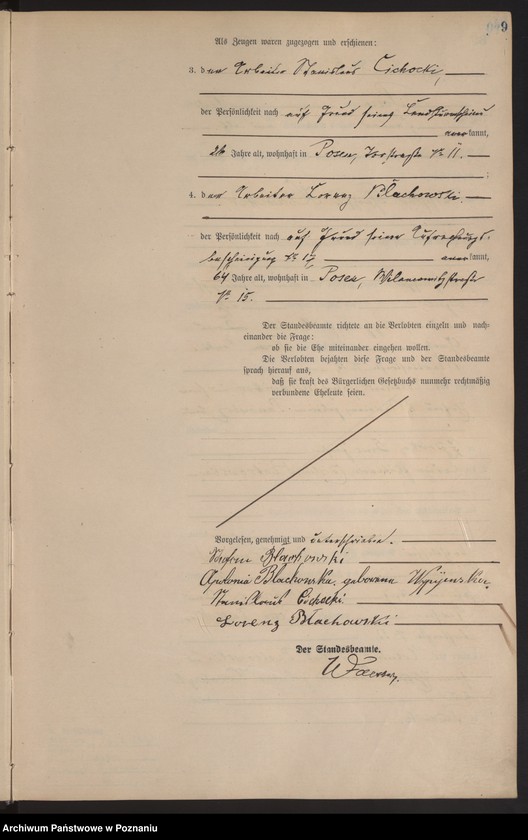 9
Als Zeugen waren zugezogen und erschienen:
3. der Arbeiter Stanislaus Cichocki,
der Persönlichkeit nach auf Grund seines
anerkannt,
26 Jahre alt, wohnhaft in Posen,
4. der Arbeiter Lorenz Blachowski
der Persönlichkeit nach auf Grund seiner Aufrechnungs-
bescheinigung No 17 anerkannt,
64 Jahre alt, wohnhaft in Posen,
No 15.
Der Standesbeamte richtete an die Verlobten einzeln und nach-
einander die Frage:
ob sie die Ehe miteinander eingehen wollen.
Die Verlobten bejahten diese Frage und der Standesbeamte
sprach hierauf aus,
daß sie kraft des Bürgerlichen Gesetzbuchs nunmehr rechtmäßig
verbundene Eheleute seien.
Vorgelesen, genehmigt und unterschrieben.
Blachowski
Apolonia Blachowska, geborene
Stanislaus Cichocki
Lorenz Błachowski
Der Standesbeamte.
Archiwum Państwowe w Poznaniu